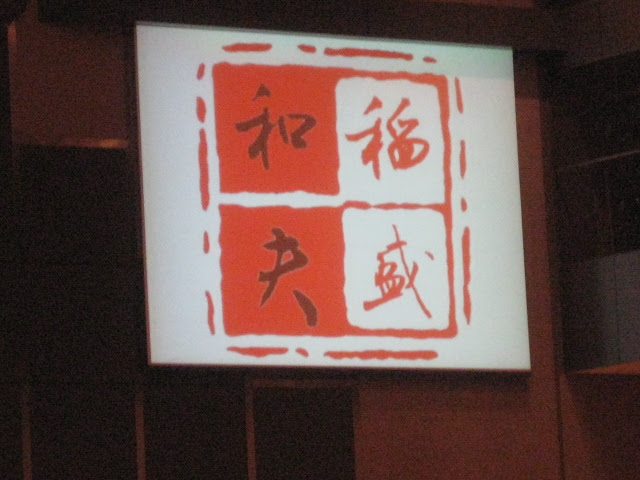 稲盛
和夫